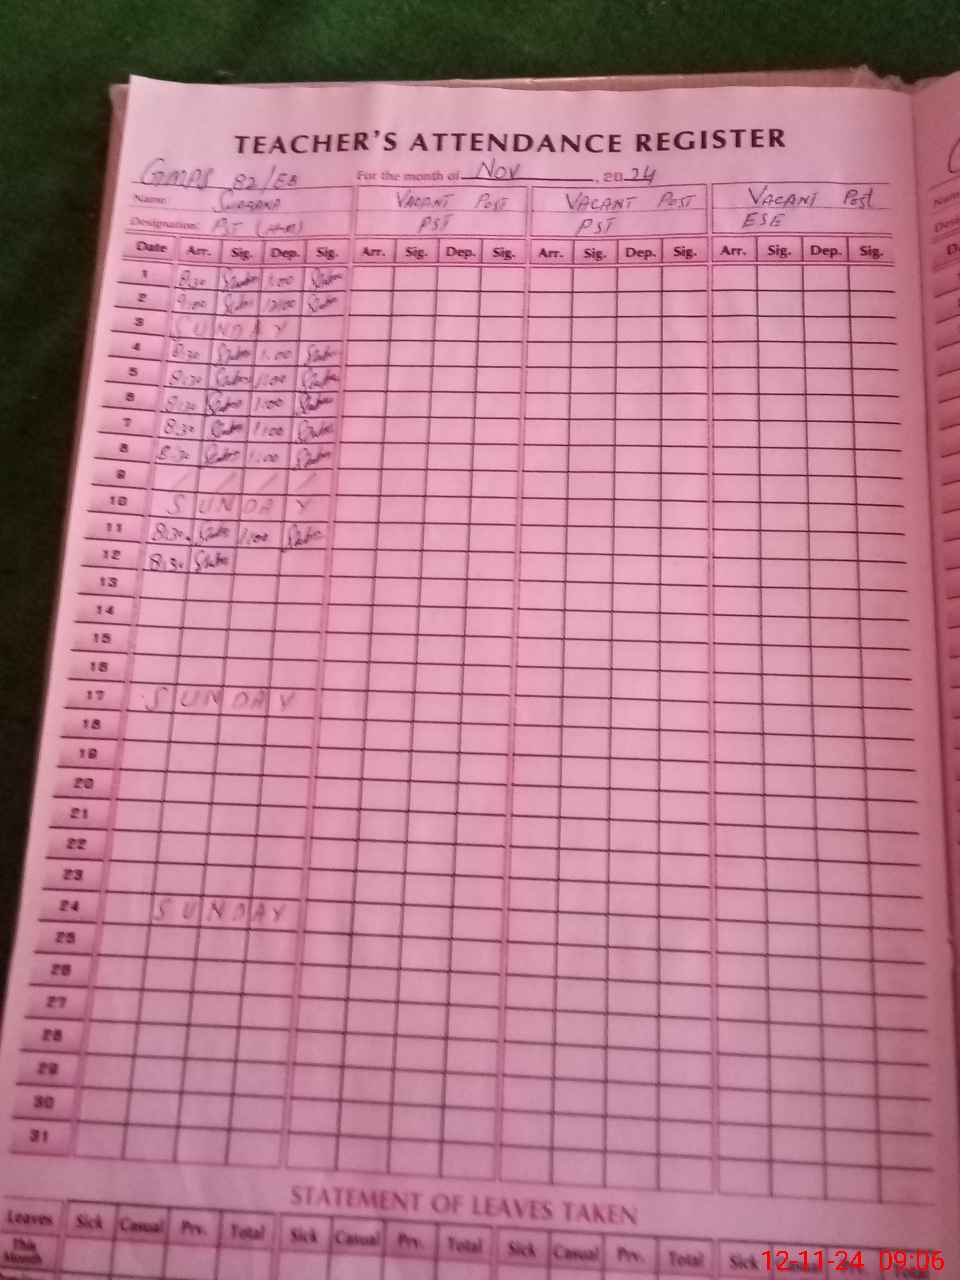 TEACHER'S ATTENDANCE REGISTER
GMPS 82/EB For the month of Nov , 2024
Name: VACANT Post VACANT POST VACANT Post
Designation: PST (HM) PST PST ESE
Date Arr. Sig. Dep. Sig. Arr. Sig. Dep. Sig. Arr. Sig. Dep. Sig. Arr. Sig. Dep. Sig.
1 8:30 1:00
2 9:00 12:00
3 SUNDAY
4 8:30 1:00
5 8:30 1:00
6 8:30 1:00
7 8:30 1:00
8 8:30 1:00
9
10 SUNDAY
11 8:30 1:00
12 8:30
13
14
15
16
17 SUNDAY
18
19
20
21
22
23
24 SUNDAY
25
26
27
28
29
30
31
STATEMENT OF LEAVES TAKEN
Leaves Sick Casual Prv. Total Sick Casual Prv. Total Sick Casual Prv. Total Sick
This Month
12-11-24 09:06